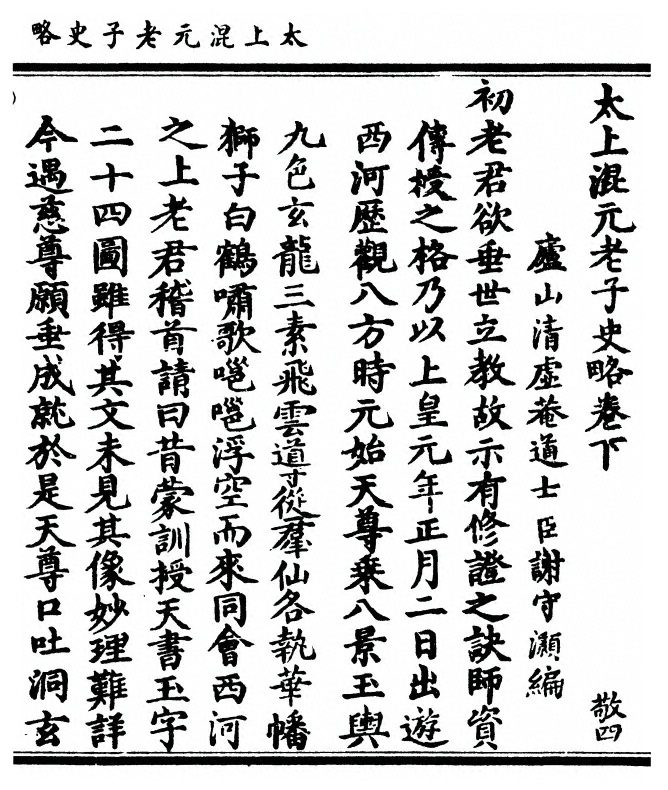 太上混元老子史略
太上混元老子史略卷下
敬四
廬山清虛菴道士臣謝守灝編
初老君欲垂世立教故示有修證之訣師資
傳授之格乃以上皇元年正月二日出遊
西河歷觀八方時元始天尊乗八景玉輿
九色玄龍三素飛雲導從羣仙各執華幡
獅子白鶴嘯歌嗈嗈浮空而來同會西河
之上老君稽首請曰昔蒙訓授天書玉字
二十四圖雖得其文未見其像妙理難詳
今遇慈尊願垂成就於是天尊口吐洞玄